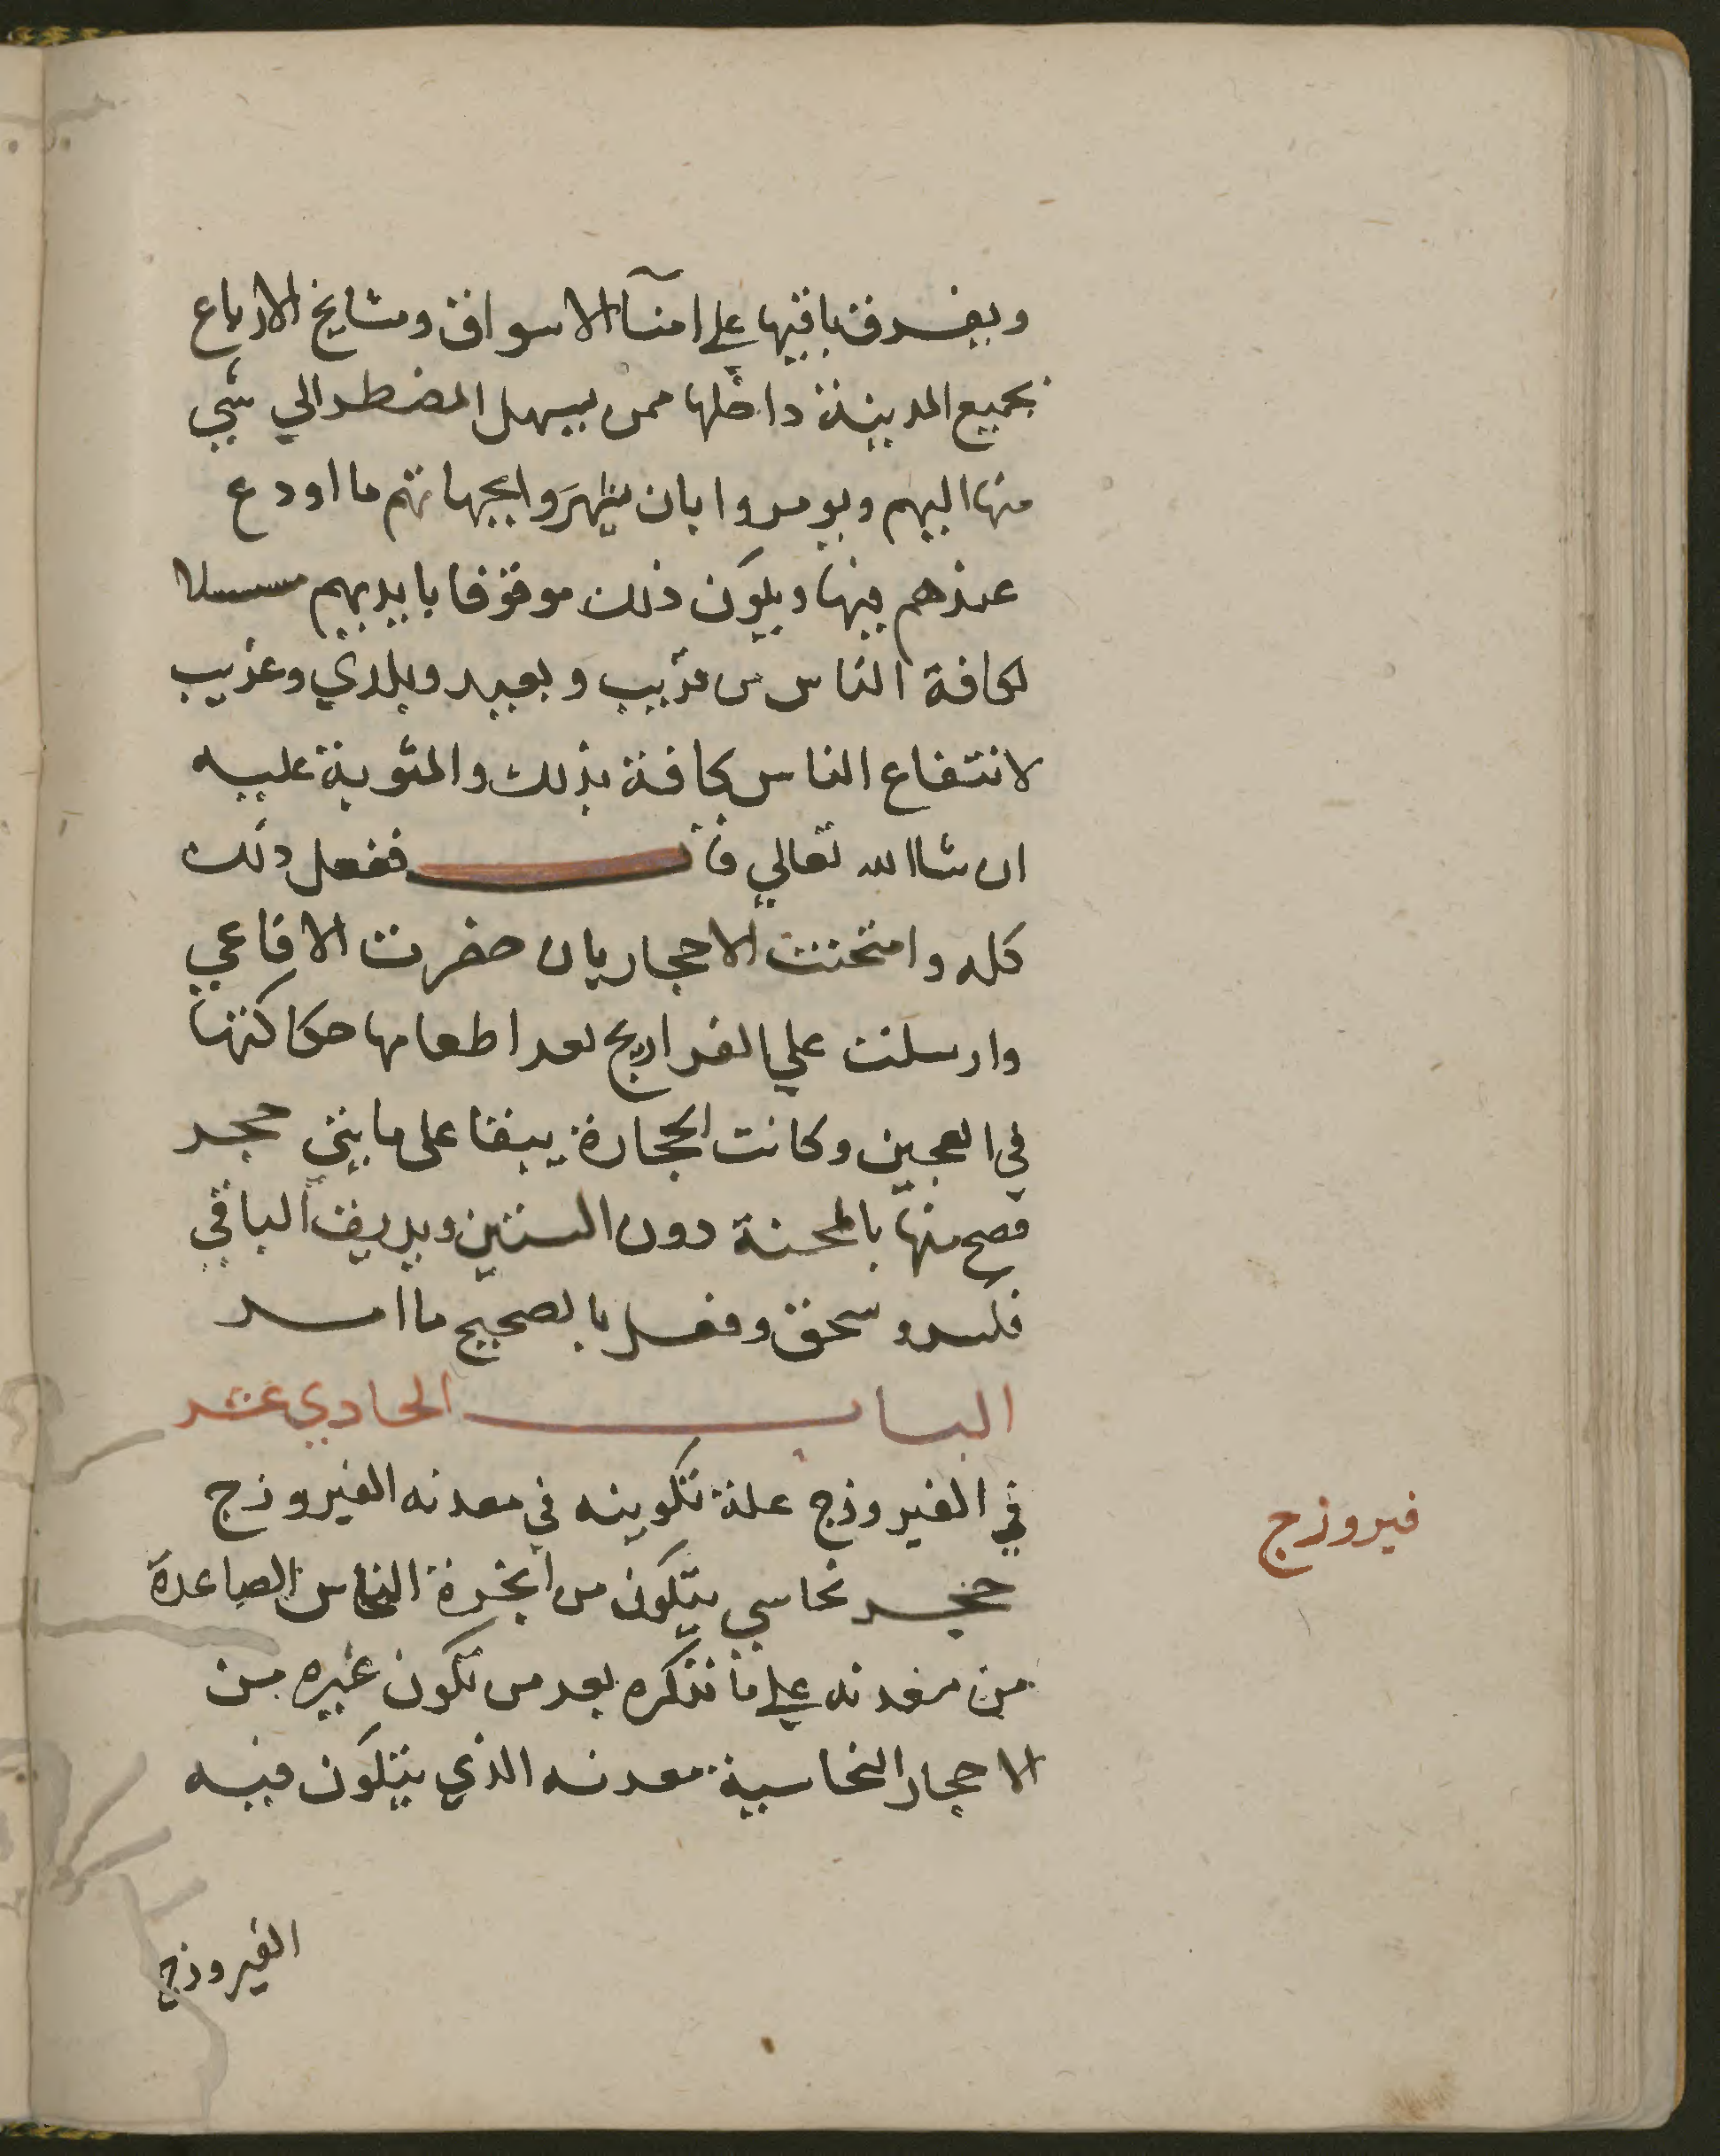 ويفرق باقيها علي امنآ الاسواق ومشايخ الارباع
بجميع المدينة داخلها ممن يسهل المضطر الي شي
منها اليهم ويومروا بان يظهروا بجهاتهم ما اودع
عندهم فيها ويكون ذلك موقوفا بايديهم مسبلا
لكافة الناس من قريب وبعيد وبلدي وغريب
لانتفاع الناس كافة بذلك والمثوبة عليه
ان شاالله تعالي قا ففعل ذلك
كله وامتحنت الاحجار بان حضرت الافاعي
وارسلت علي الفراريج بعد اطعامها حكاكتها
في العجين وكانت الحجارة ينيفا على مايتي حجر
فصح منها بالمحنة دون الستين وبريف الباقي
فكسر وسحق وفعل بالصحيح ما امر
الباب الحادي عشر
في الفيروزج علة تكوينه في معدنه الفيروزج
فيروزج
حجر نحاسي يتكون من ابخرة النحاس الصاعدة
من معدنه علي ما نذكره بعد من تكون غيره من
الاحجار النحاسية معدنه الذي يتكون فيه
الفيروزج